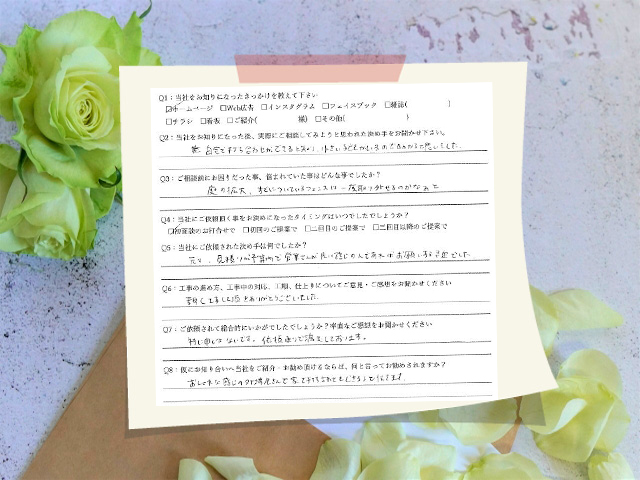 Q1：当社をお知りになったきっかけを教えて下さい
☑ホームページ □Web広告 □インスタグラム □フェイスブック □雑誌( )
□チラシ □看板 □ご紹介( 様) □その他( )
Q2：当社をお知りになった後、実際にご相談してみようと思われた決め手をお聞かせ下さい。
自宅で打ち合わせができるとあり、小さい子どもがいるので
Q3：ご相談前にお困りだった事、悩まれていた事はどんな事でしたか？
庭の拡大、すでについているフェンスは一度取り外せるのかなあと
Q4：当社にご依頼頂く事をお決めになったタイミングはいつでしたでしょうか？
□初回のご提案で □二回目のご提案で □三回目以降のご提案で
Q5：当社にご依頼された決め手は何でしたか？
見積りが予算内で営業さんが良い感じの人であればお願いする
Q6：工事の進め方、工事中の対応、工期、仕上りについてご意見・ご感想をお聞かせください
ありがとうございました。
Q7：ご依頼されて総合的にいかがでしたでしょうか？率直なご感想をお聞かせください
特に申し分ないです。依頼通りで満足しております。
Q8：仮にお知り合いへ当社をご紹介・お勧め頂けるならば、何と言ってお勧めされますか？
おしゃれな感じのお庭屋さんで家で打ち合わせもできるよと伝えます。